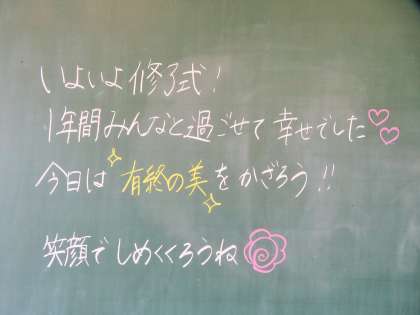 いよいよ修了式!
1年間みんなと過ごせて幸せでした
今日は有終の美をかざろう!!
笑顔でしめくくろうね